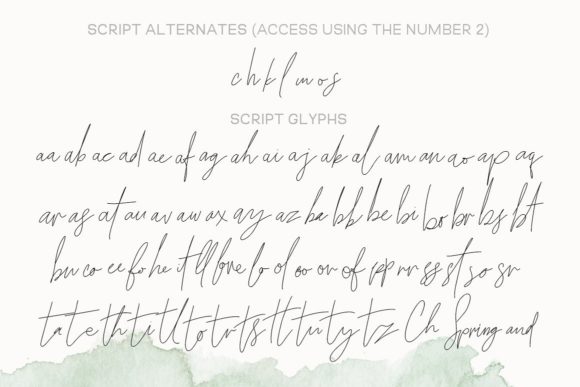 SCRIPT ALTERNATES (ACCESS USING THE NUMBER 2)
c h k l m o s
SCRIPT GLYPHS
aa ab ac ad ae af ag ah ai aj ak al am an ao ap aq
ar as at au av aw ax ay az ba bb be bi bo br bs bt
bu co ee fo he it ll love lo ol oo or of pp rr ss st so sr
ta te th ti tl to tr ts tt tu ty tz Ch Spring and